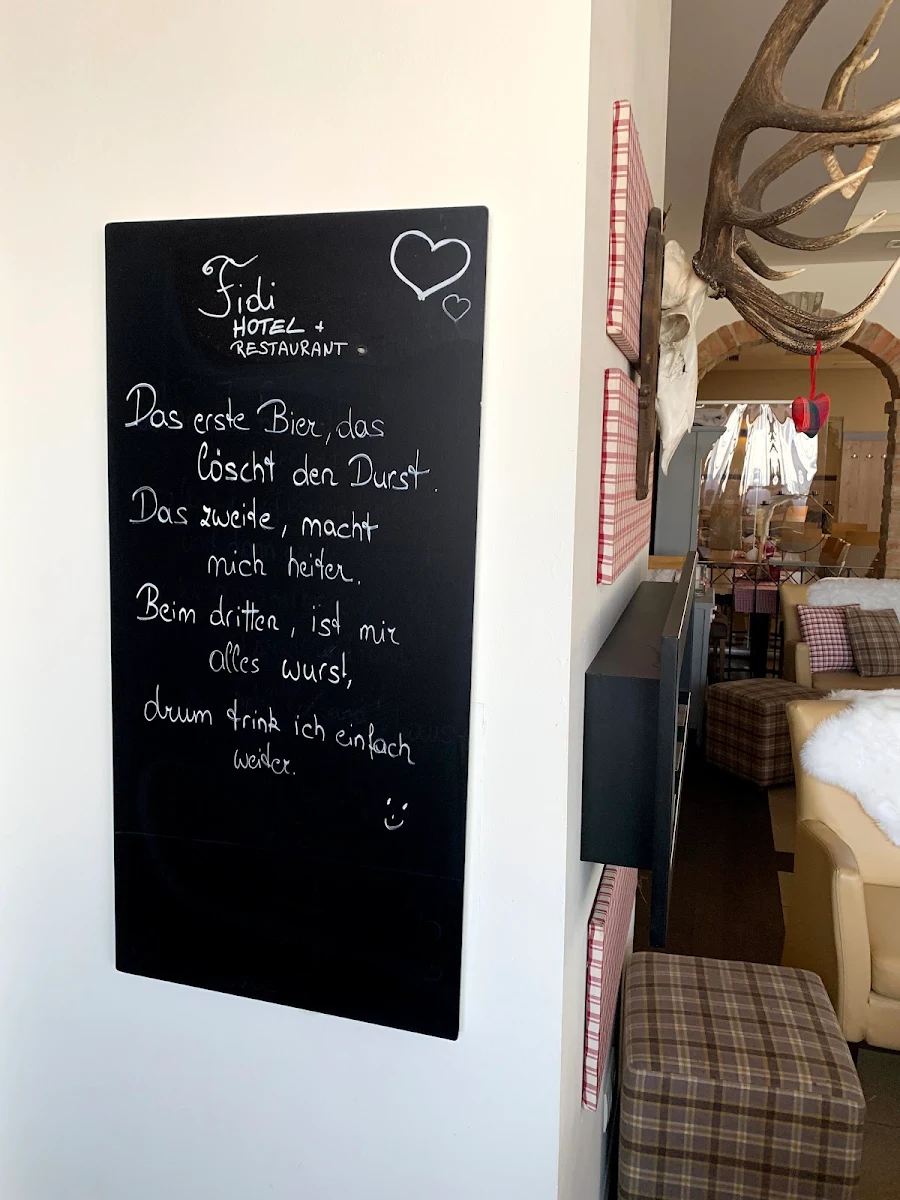 Fidi
HOTEL +
RESTAURANT
Das erste Bier, das
löscht den Durst.
Das zweite, macht
mich heiter.
Beim dritten, ist mir
alles wurst,
drum trink ich einfach
weiter.